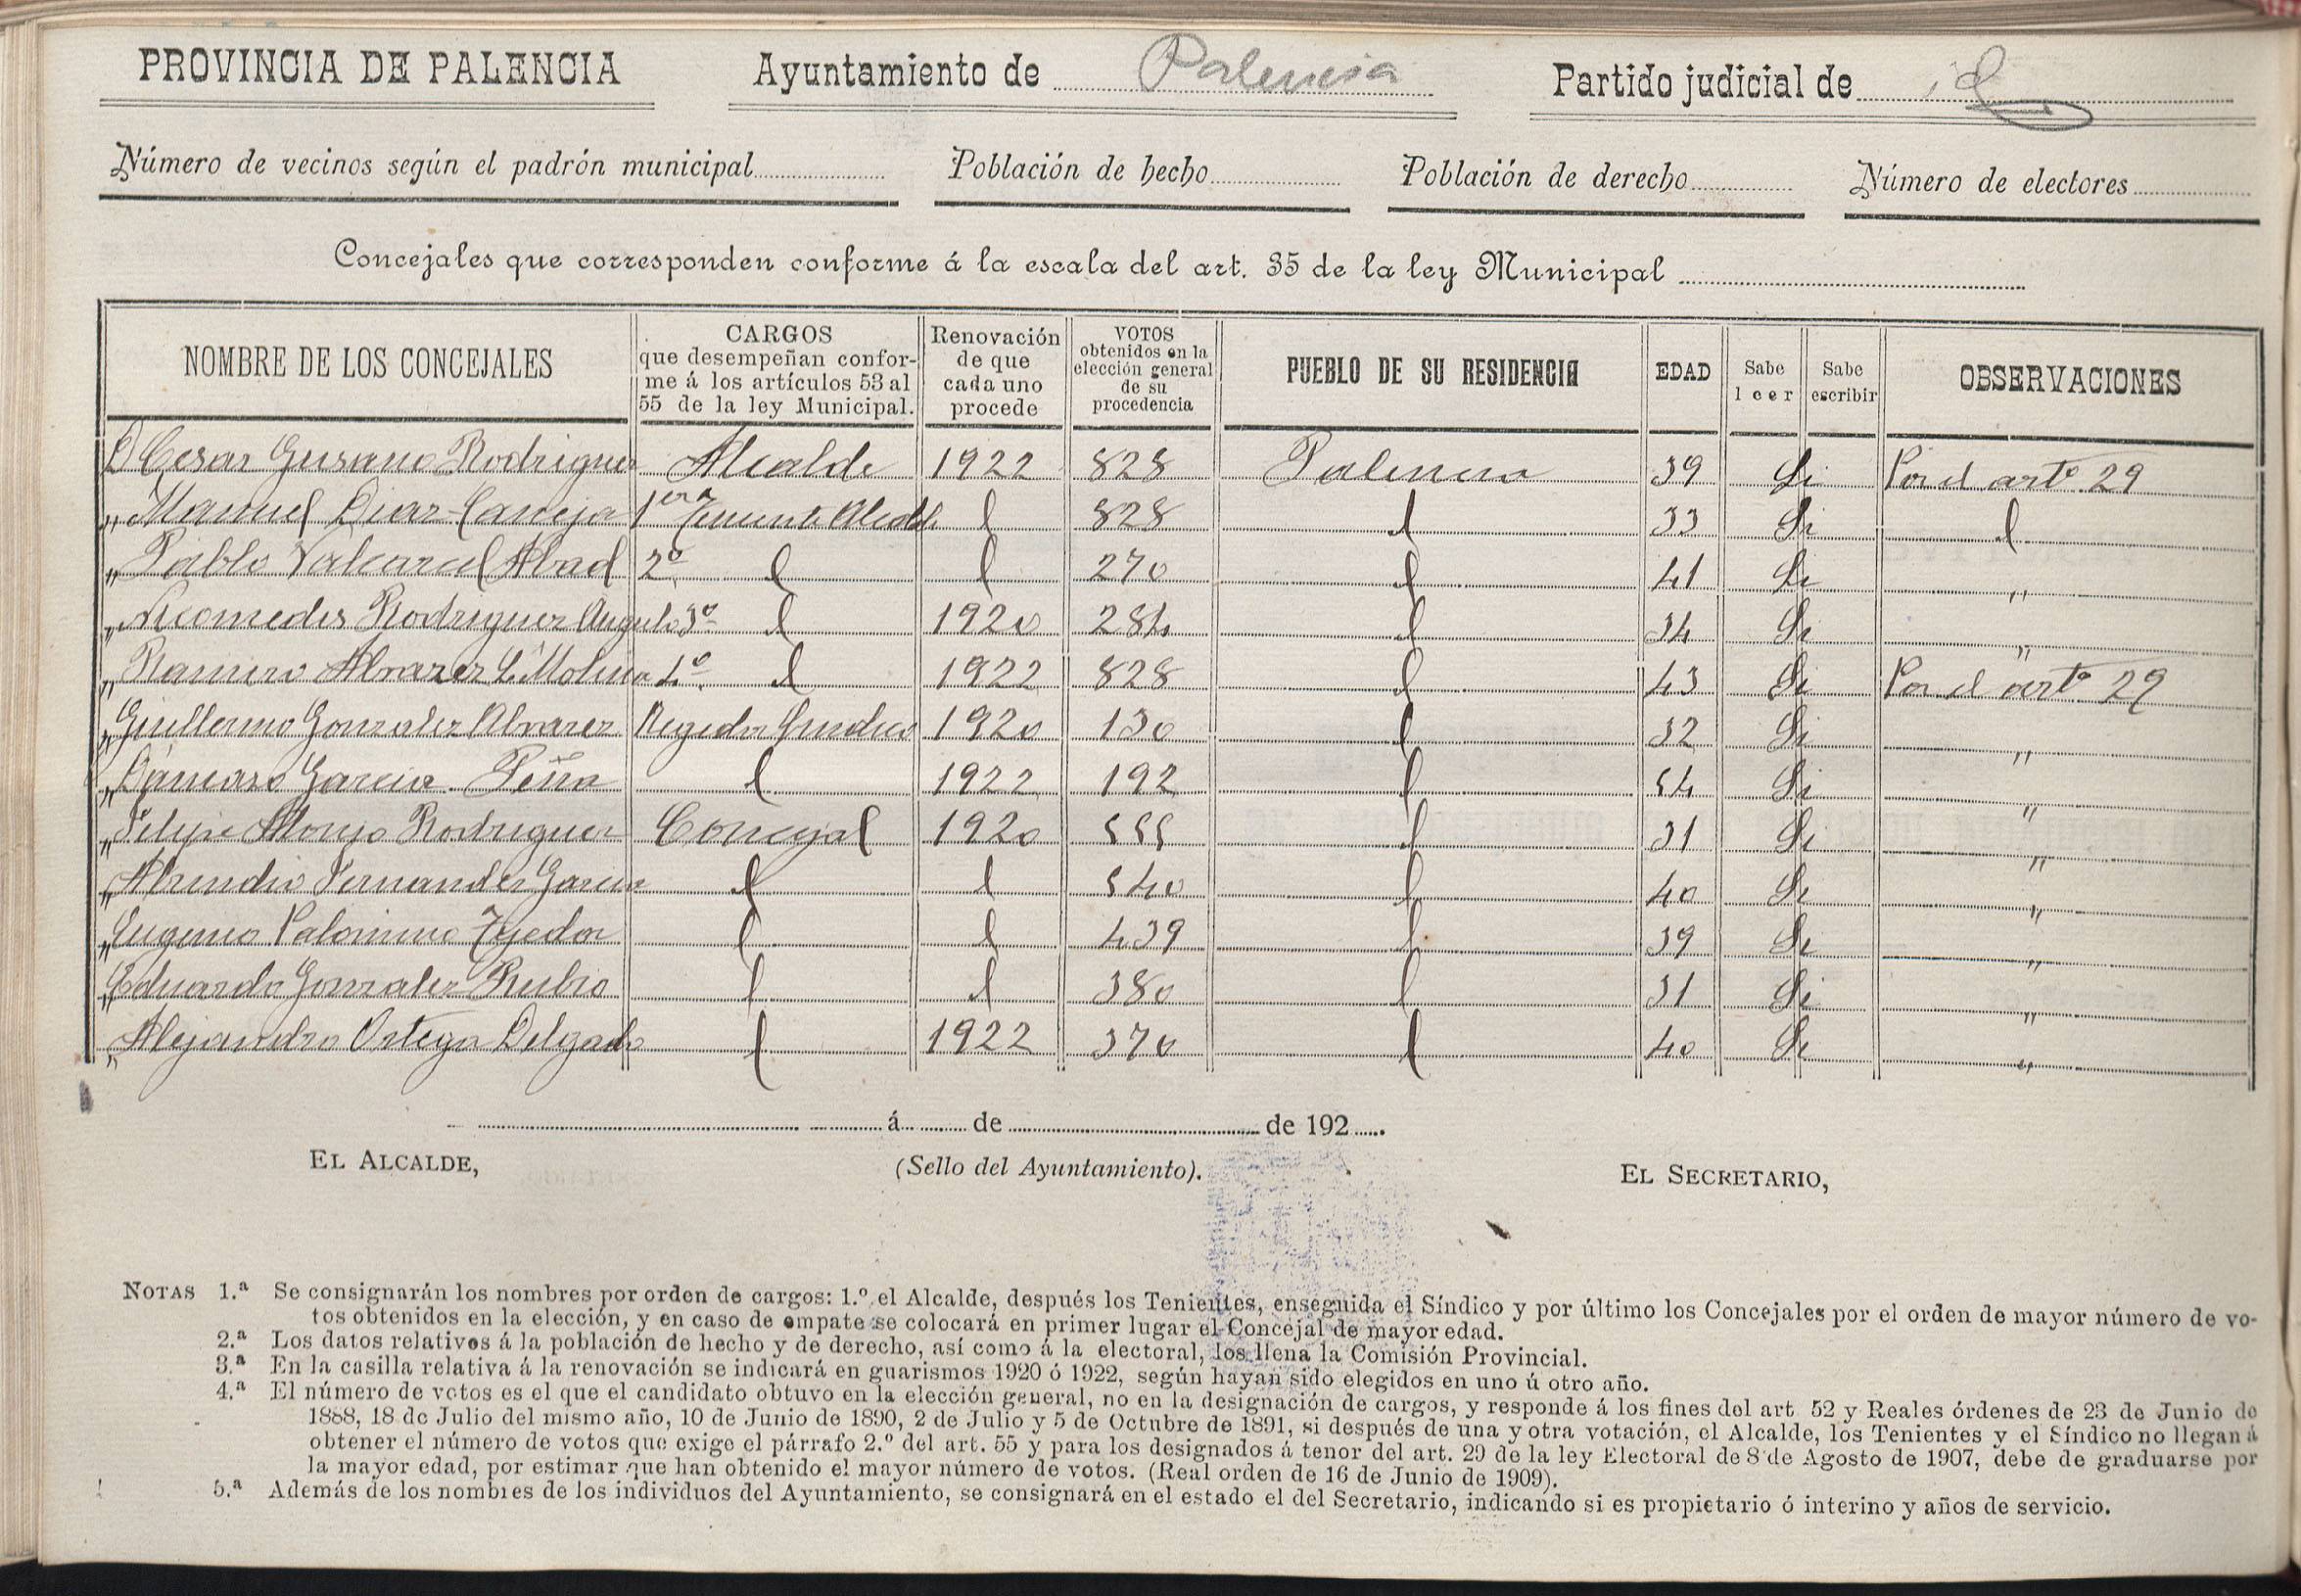 PROVINCIA DE PALENCIA Ayuntamiento de Palencia Partido judicial de id
Número de vecinos según el padrón municipal Población de hecho Población de derecho Número de electores
Concejales que corresponden conforme á la escala del art. 35 de la ley Municipal
NOMBRE DE LOS CONCEJALES
CARGOS
que desempeñan confor-
me á los artículos 53 al
55 de la ley Municipal.
Renovación
de que
cada uno
procede
VOTOS
obtenidos en la
elección general
de su
procedencia
PUEBLO DE SU RESIDENCIA
EDAD
Sabe
leer
Sabe
escribir
OBSERVACIONES
D Cesar Gusano Rodriguez Alcalde 1922 828 Palencia 39 Si Por el artº 29
„ Manuel Diaz-Caneja 1er Teniente Alcalde 828 33 Si
„ Pablo Valcarcel Abad 2º 270 41 Si "
„ Nicomedes Rodriguez Angulo 3º 1920 284 34 Si "
„ Ramiro Alvarez L. Molina 4º 1922 828 43 Si Por el artº 29
„ Guillermo Gonzalez Alvarez Regidor Sindico 1920 130 32 Si "
„ Damaso Garcia Peña 1922 192 54 Si "
„ Felipe Alonso Rodriguez Concejal 1920 555 31 Si "
„ Fernandez Garcia 540 40 Si "
„ Eugenio Palomino Tejedor 439 39 Si "
„ Eduardo Gonzalez Rubio 380 31 Si "
„ Alejandro Ortega Delgado 1922 370 40 Si "
á de de 192
EL ALCALDE, (Sello del Ayuntamiento). EL SECRETARIO,
NOTAS 1.ª Se consignarán los nombres por orden de cargos: 1.º el Alcalde, después los Tenientes, enseguida el Síndico y por último los Concejales por el orden de mayor número de vo-
tos obtenidos en la elección, y en caso de empate se colocará en primer lugar el Concejal de mayor edad.
2.ª Los datos relativos á la población de hecho y de derecho, así como á la electoral, los llena la Comisión Provincial.
3.ª En la casilla relativa á la renovación se indicará en guarismos 1920 ó 1922, según hayan sido elegidos en uno ú otro año.
4.ª El número de votos es el que el candidato obtuvo en la elección general, no en la designación de cargos, y responde á los fines del art 52 y Reales órdenes de 23 de Junio de
1888, 18 de Julio del mismo año, 10 de Junio de 1890, 2 de Julio y 5 de Octubre de 1891, si después de una y otra votación, el Alcalde, los Tenientes y el Síndico no llegan á
obtener el número de votos que exige el párrafo 2.º del art. 55 y para los designados á tenor del art. 29 de la ley Electoral de 8 de Agosto de 1907, debe de graduarse por
la mayor edad, por estimar que han obtenido el mayor número de votos. (Real orden de 16 de Junio de 1909).
5.ª Además de los nombres de los individuos del Ayuntamiento, se consignará en el estado el del Secretario, indicando si es propietario ó interino y años de servicio.